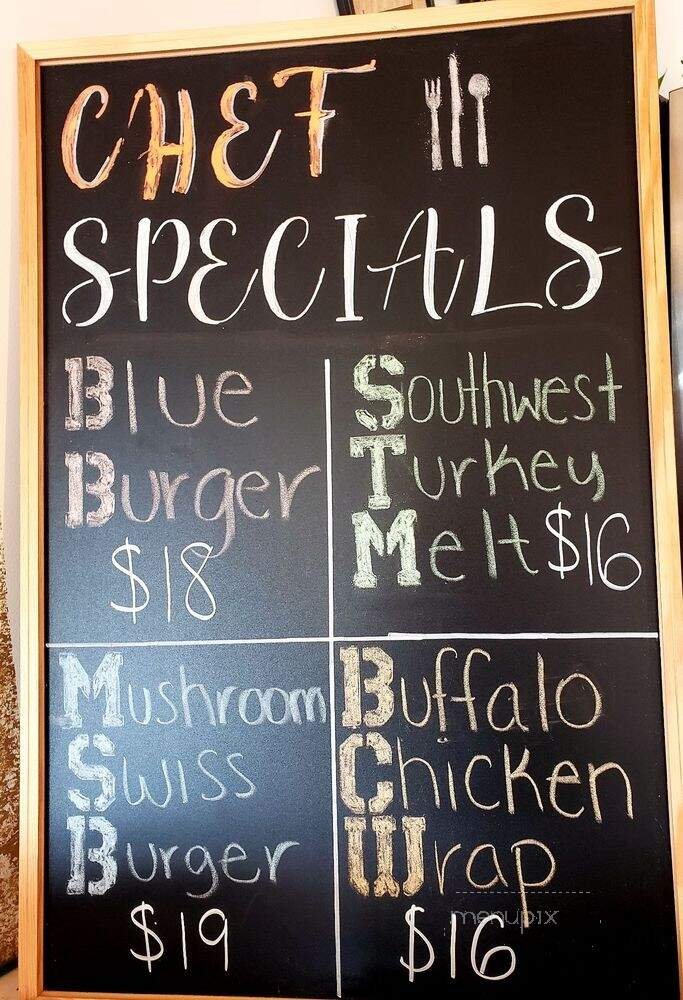 CHEF
SPECIALS
Blue
Burger
$18
Southwest
Turkey
Melt $16
Mushroom
Swiss
Burger
$19
Buffalo
Chicken
Wrap
$16
menupix